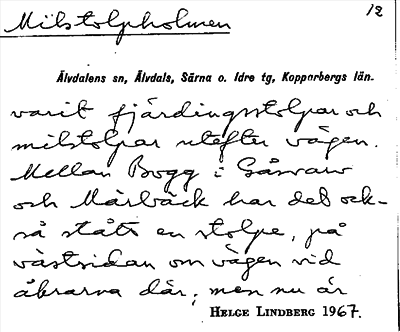 Milstolpholmen
12
Älvdalens sn, Älvdals, Särna o. Idre tg, Kopparbergs län.
varit fjärdingsstolpar och
milstolpar utefter vägen.
Mellan Bogg i Gåsvarv
och Mårbäck har det ock-
så stått en stolpe, på
västsidan om vägen vid
åkrarna där; men nu är
HELGE LINDBERG 1967.